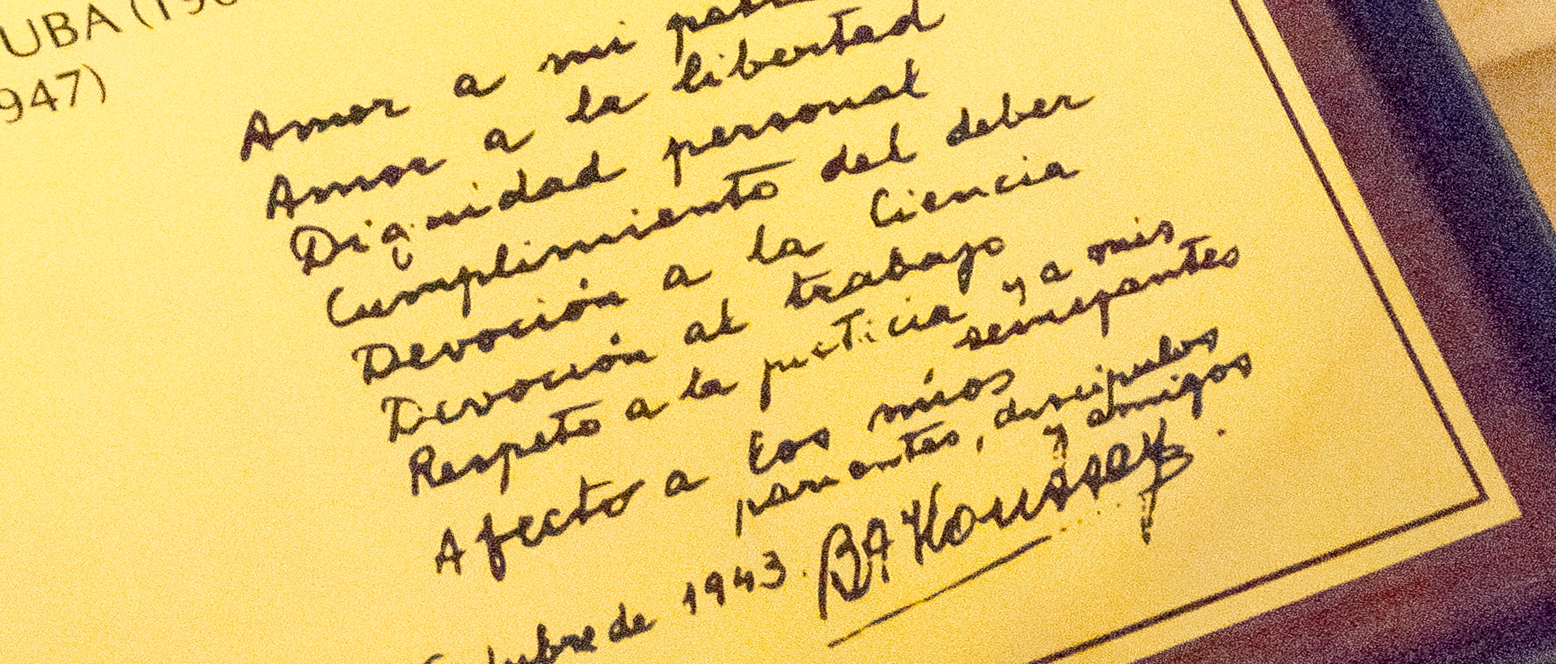 UBA (19
947)
Amor a mi
Amor a la libertad
Dignidad personal
Cumplimiento del deber
Devoción a la Ciencia
Devoción al trabajo
Respeto a la justicia y a mis
semejantes
Afecto a los míos
parientes, discípulos
y amigos
de 1943. BAHoussay